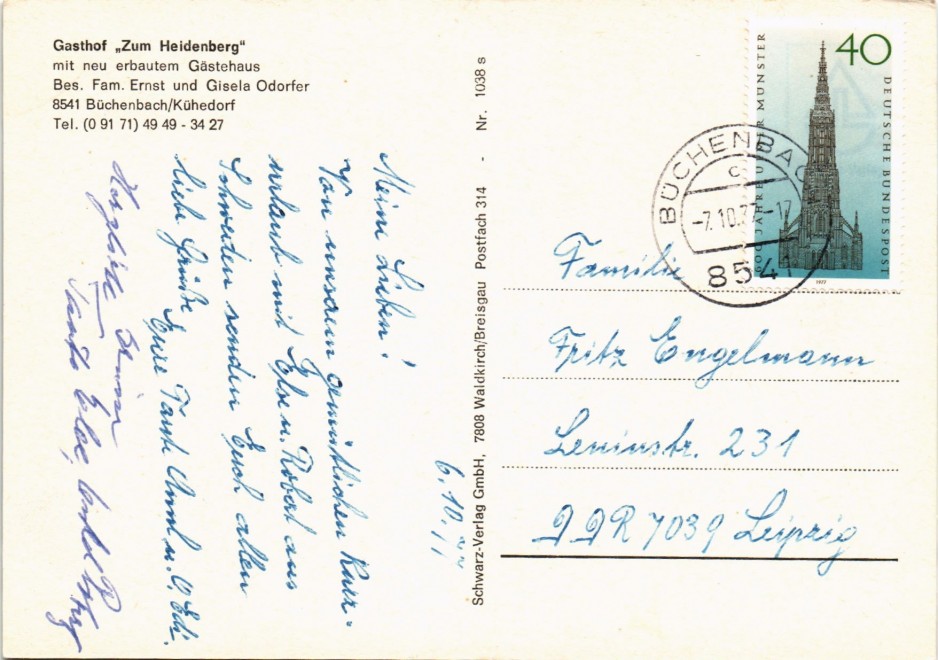 Gasthof „Zum Heidenberg“
mit neu erbautem Gästehaus
Bes. Fam. Ernst und Gisela Odorfer
8541 Büchenbach/Kühedorf
Tel. (0 91 71) 49 49 - 34 27
6.10.77
Meine Lieben!
Von unserem gemütlichen Kurz-
urlaub mit Else u. Robert aus
Schweden senden Euch allen
liebe Grüße Eure Tante Anni u. O. Edi.
Herzliche
Tante Else,
Schwarz-Verlag GmbH, 7808 Waldkirch/Breisgau Postfach 314 - Nr. 1038 s
40
DEUTSCHE BUNDESPOST
JAHRE ULMER MÜNSTER
1977
BÜCHENBAC
c
-7.10.77-17
8541
Familie
Fritz Engelmann
Leninstr. 231
DDR 7039 Leipzig